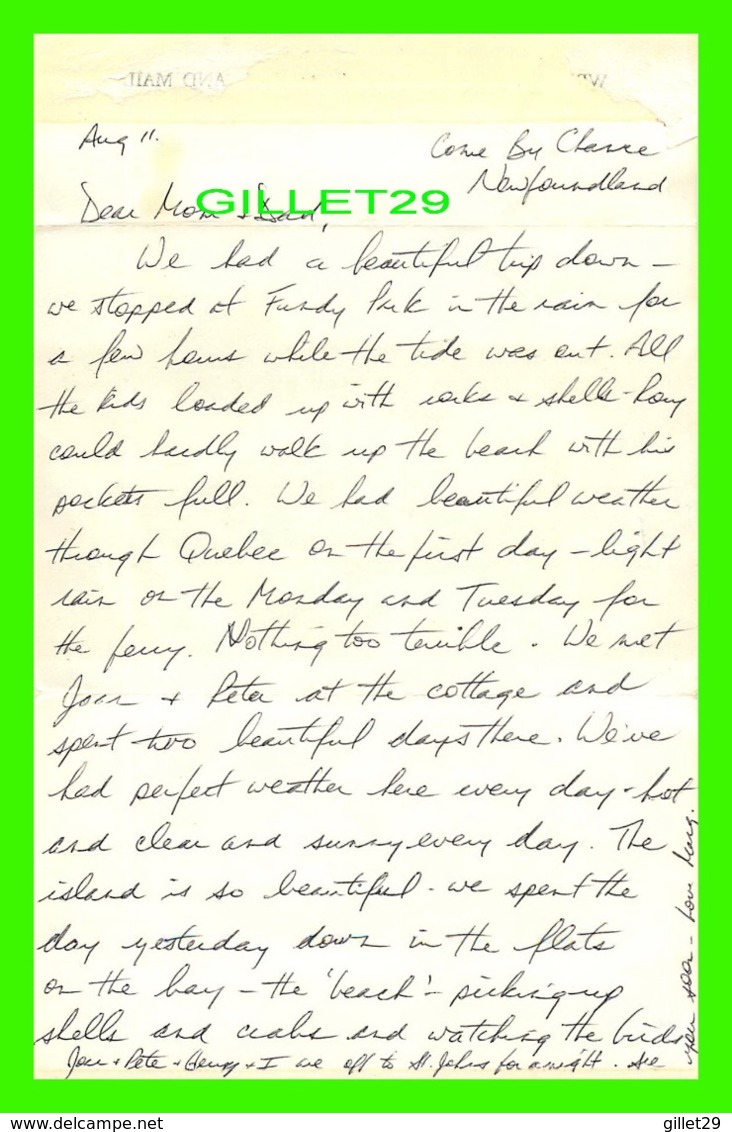 AND MAIL
Aug 11.
Come By Chance
Newfoundland
Dear Mom & Dad,
GILLET29
We had a beautiful trip down -
we stopped at Fundy Park in the rain for
a few hours while the tide was out. All
the kids loaded up with rocks & shells -
could hardly walk up the beach with his
pockets full. We had beautiful weather
through Quebec on the first day - light
rain on the Monday and Tuesday for
the ferry. Nothing too terrible. We met
Joan & Peter at the cottage and
spent two beautiful days there. We've
had perfect weather here every day - hot
and clear and sunny every day. The
island is so beautiful - we spent the
day yesterday down in the flats
on the bay - the 'beach' - picking up
shells and crabs and watching the birds
Joan & Pete & & I are off to St. Johns for a night. See
you soon - Love
Delcampe.net
gillet29